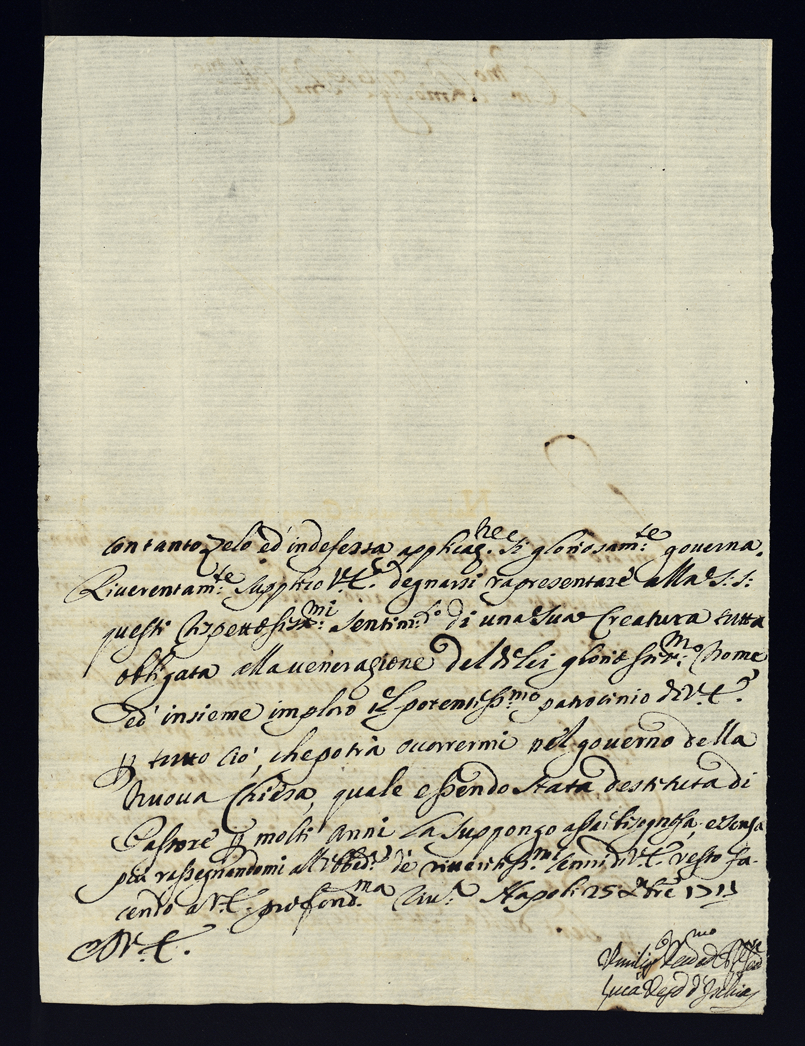 con tanto zelo ed' indefessa applicaz.nee sì gloriosam.te governa.
Riverentam.te supplico V.E. degnarsi rapresentare alla S. S:
questi rispettosiss.mi sentim.ti di una sua Creatura tutta
obligata alla venerazione del di lei gloriosiss.mo Nome
ed' insieme imploro il potentiss.mo patrocinio di V.E.
p tutto ciò, che potrà occorrermi nel governo della
Nuova Chiesa, quale essendo stata destituta di
Pastore p molti anni la suppongo assai bisognosa, e senza
più rassegnandomi all' obbed.a de riveritiss.mi cenni di V.E. resto fa-
cendo a V.E. profond.ma riv.a Napoli 25 Xbre 1711
D V.E.
Umiliss.o Dev.mo
Luca Vesc.o d'Ischia